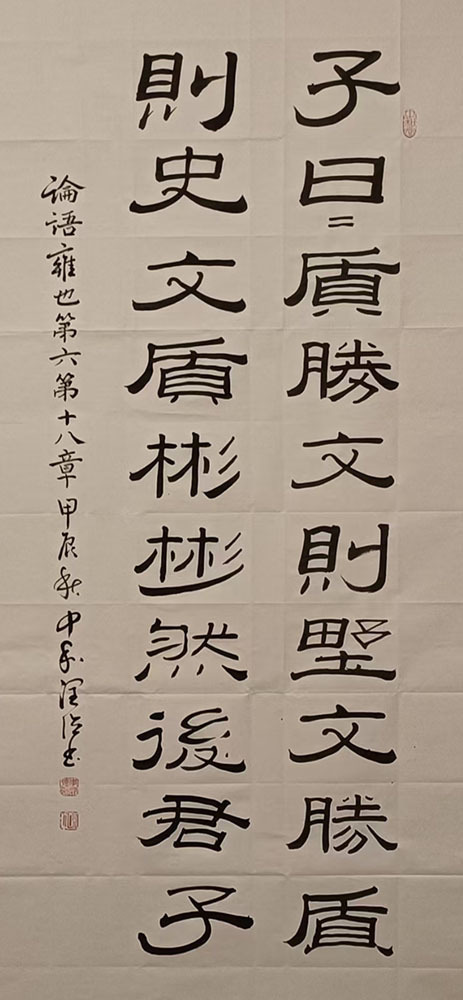 子曰=質勝文則野文勝質
則史文質彬彬然後君子
論語雍也第六第十八章甲辰秋中書